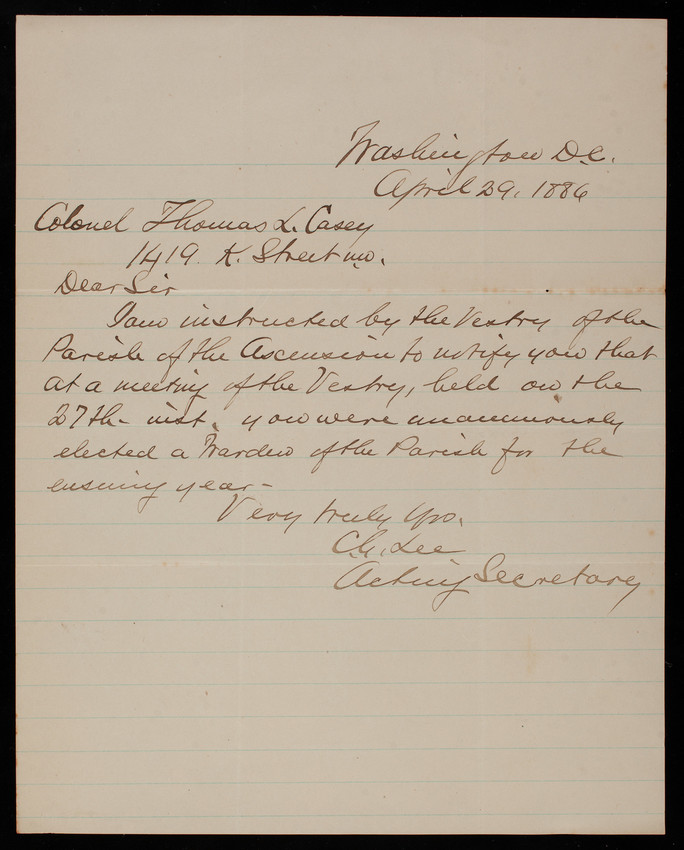 Washington D.C.
April 29, 1886
Colonel Thomas L. Casey
1419 K. Street nw.
Dear Sir
I am instructed by the Vestry of the
Parish of the Ascension to notify you that
at a meeting of the Vestry, held on the
27th- inst. you were unanimously
elected a Warden of the Parish for the
ensuing year-
Very truly Yrs.
C.G. Lee
Acting Secretary